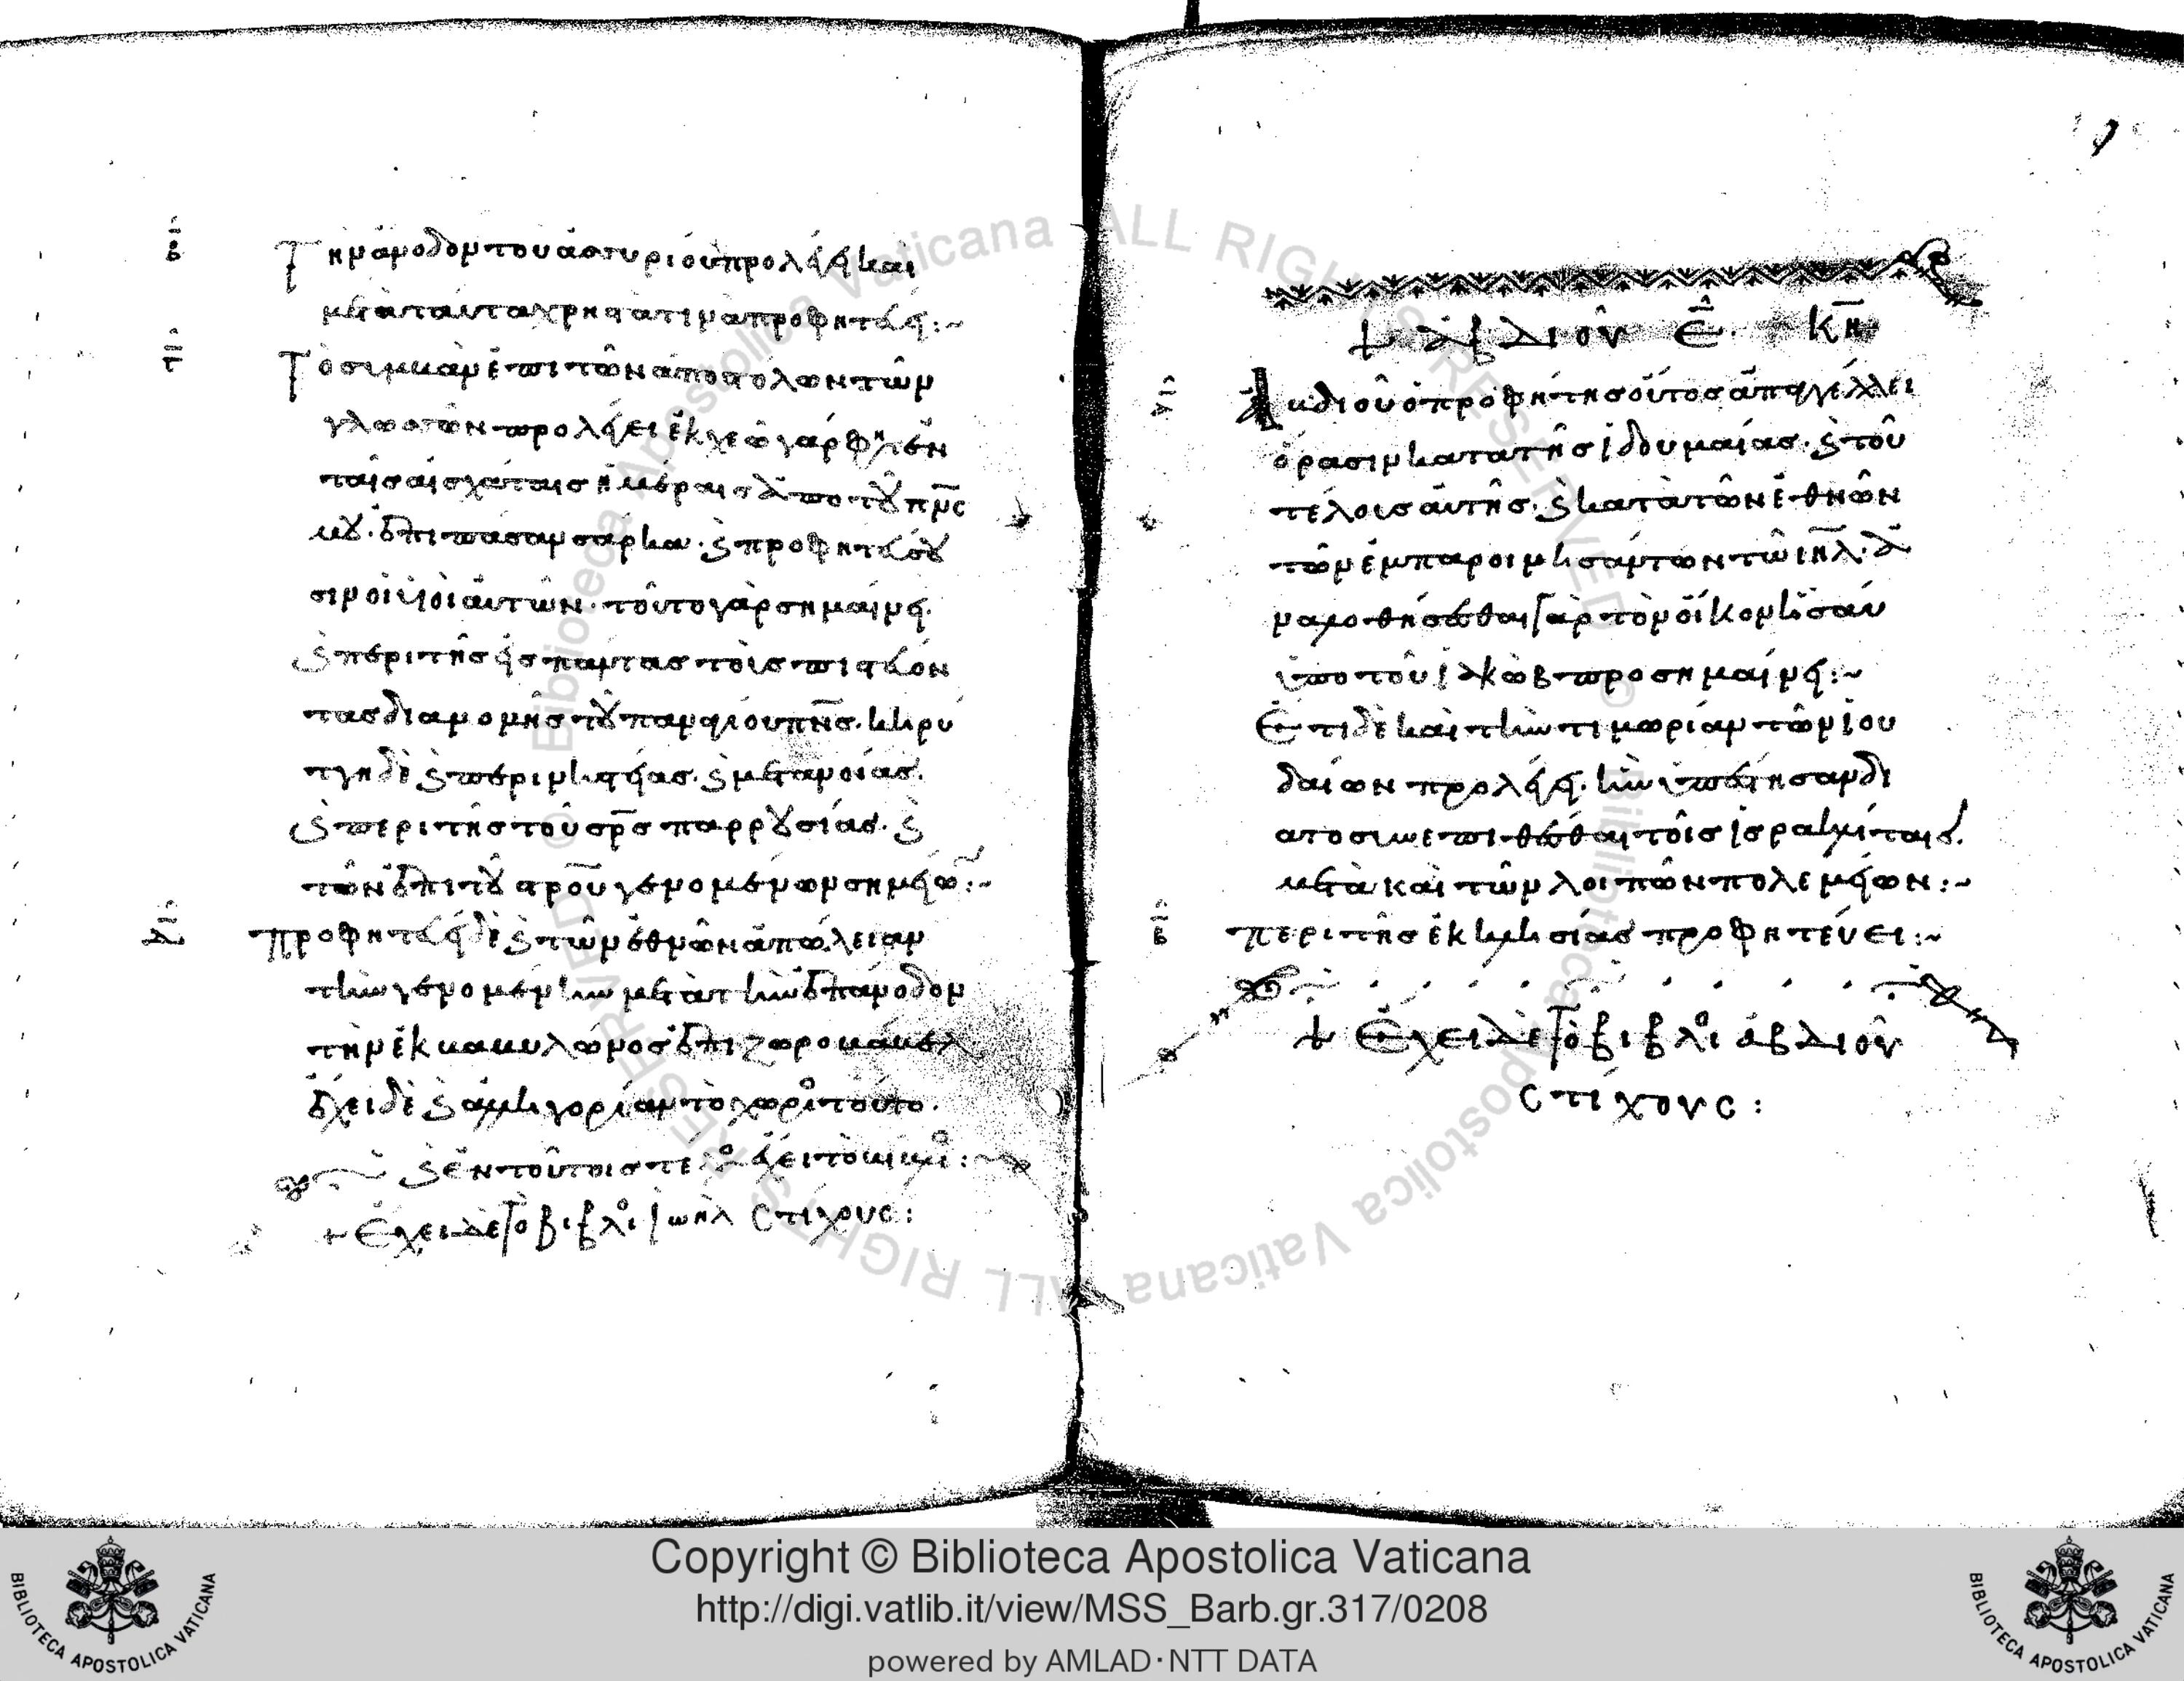 β
Τὴν ἄνοδον τοῦ ἀσσυρίου προλέγει καὶ
μετὰ ταῦτα χρηστά τινα προφητεύει :~
γ
Τὸ συμβὰν ἐπὶ τῶν ἀποστόλων τῶν
γλωσσῶν προλέγει ἐκχεῶ γάρ φησιν ἐν
ταῖς αἰσχάταις ἡμέραις ἀπο τοῦ πνς
μου. ἐπι πᾶσαν σάρκα. καὶ προφητεύσου
σιν οἱ υἱοὶ αὐτῶν. τοῦτο γὰρ σημαίνει.
καὶ περι τῆς εἰς πάντας τοὺς πιστεύον
τας διανομῆς τοῦ παναγίου πνς. κηρύ
ττει δὲ καὶ περι νηστείας. καὶ μετανοίας.
καὶ περι τῆς τοῦ σρς παρρουσίας. καὶ
τῶν ἐπι τοῦ στροῦ γενομένων σημείω :~
δ
προφητεύει δὲ καὶ τῶν ἐθνῶν ἀπώλειαν
τὴν γενομένην μετὰ τὴν ἐπάνοδον
τὴν ἐκ βαβυλῶνος ἐπι ζοροβάβελ
ἔχει δὲ καὶ ἀλληγορίαν τὸ χωρίον τοῦτο.
καὶ ἐν τούτοις τελειοῖ τὸ βιβλίον :~
+ Ἔχει δὲ τὸ βιβλίον ἰωὴλ στίχους :
+ ἀβδιοῦ ε. κη
α
Αβδιοῦ ὁ προφήτης οὗτος ἀπαγγέλλει
ὅρασιν κατα τῆς ἰδουμαίας. καὶ τοῦ
τέλους αὐτῆς. καὶ κατὰ τῶν ἐθνῶν
τῶν ἐμπαροινησάντων τῶ ιηλ. δ
ναλοθήσεσθαι γὰρ τὸν οἶκον ἠσαῦ
ὑπο τοῦ ἰακὼβ προσημαίνει :~
Ἔτι δὲ καὶ τὴν τιμωρίαν τῶν ἰου
δαίων προλέγει. ἣν ὑπέστησαν δι
ατο συνεπιθέσθαι τοῖς ἰσραηλίταις.
μετὰ καὶ τῶν λοιπῶν πολεμείων :~
β
περι τῆς ἐκκλησίας προφητεύει :~
+ Ἔχει δὲ τὸ βιβλίον ἀβδιοῦ
στίχους :
Copyright © Biblioteca Apostolica Vaticana
http://digi.vatlib.it/view/MSS_Barb.gr.317/0208
powered by AMLAD·NTT DATA
BIBLIOTECA APOSTOLICA VATICANA
BIBLIOTECA APOSTOLICA VATICANA